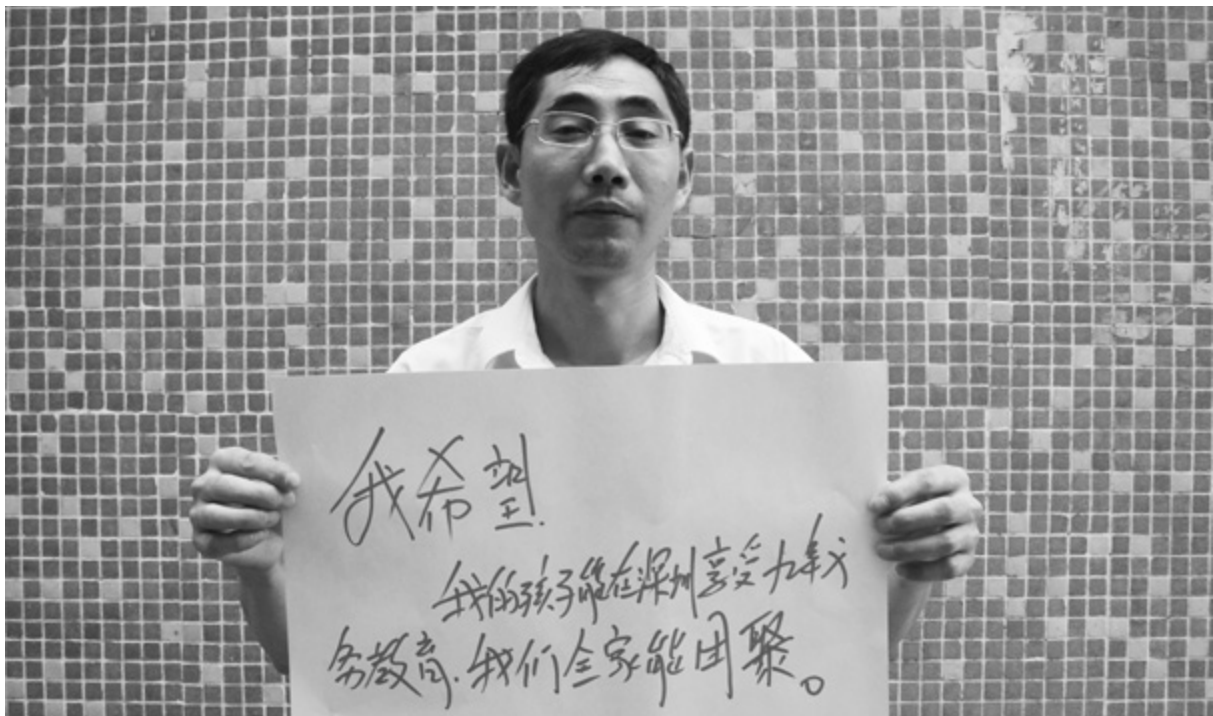 我希望.
我的孩子能在深圳享受九年义
务教育.我们全家能团聚。